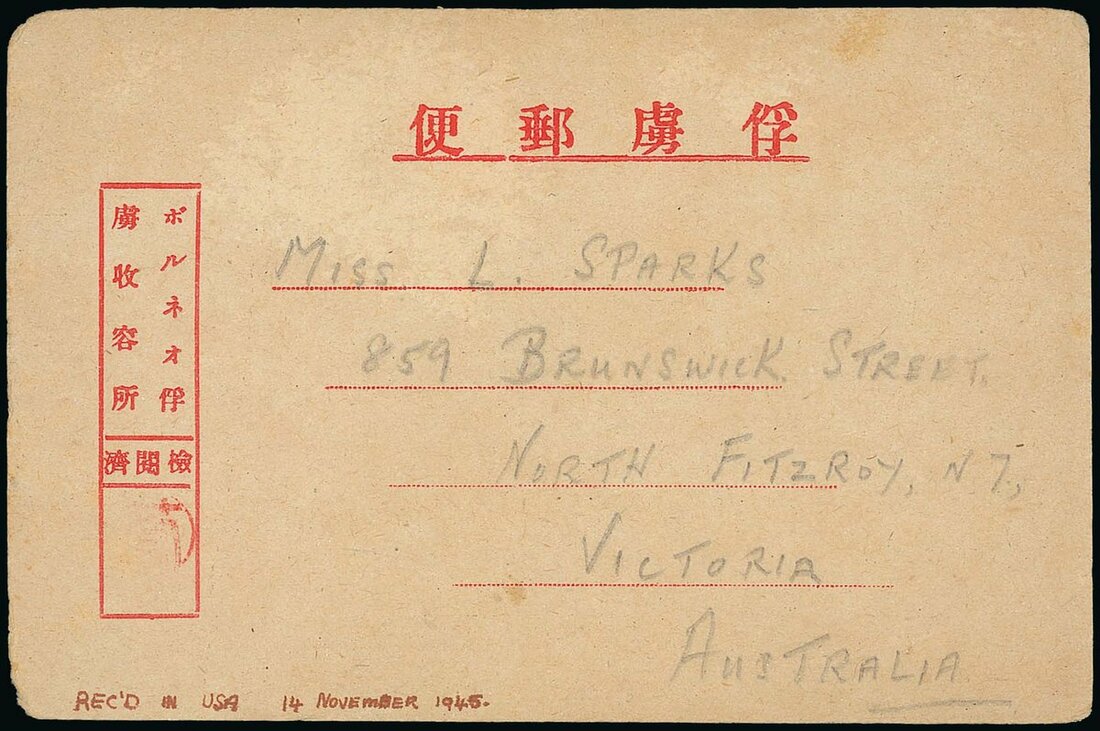 俘虜郵便
ボルネオ俘
虜收容所
檢閲濟
MISS L. SPARKS
859 BRUNSWICK STREET.
NORTH FITZROY, N.7.,
VICTORIA
AUSTRALIA
REC'D IN USA 14 NOVEMBER 1945.